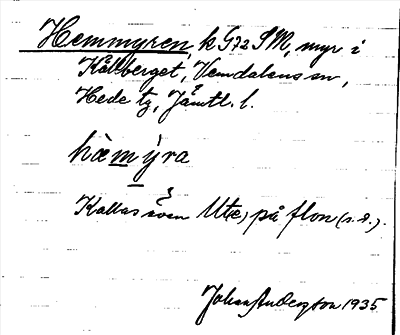 Hemmyren, k G72 SM, myr i
Kålberget, Vemdalens sn,
Hede tg, Jämtl. l.
hæmýra
Kallas även Ut(e) på flon (s.d.).
Johan Anderson 1935